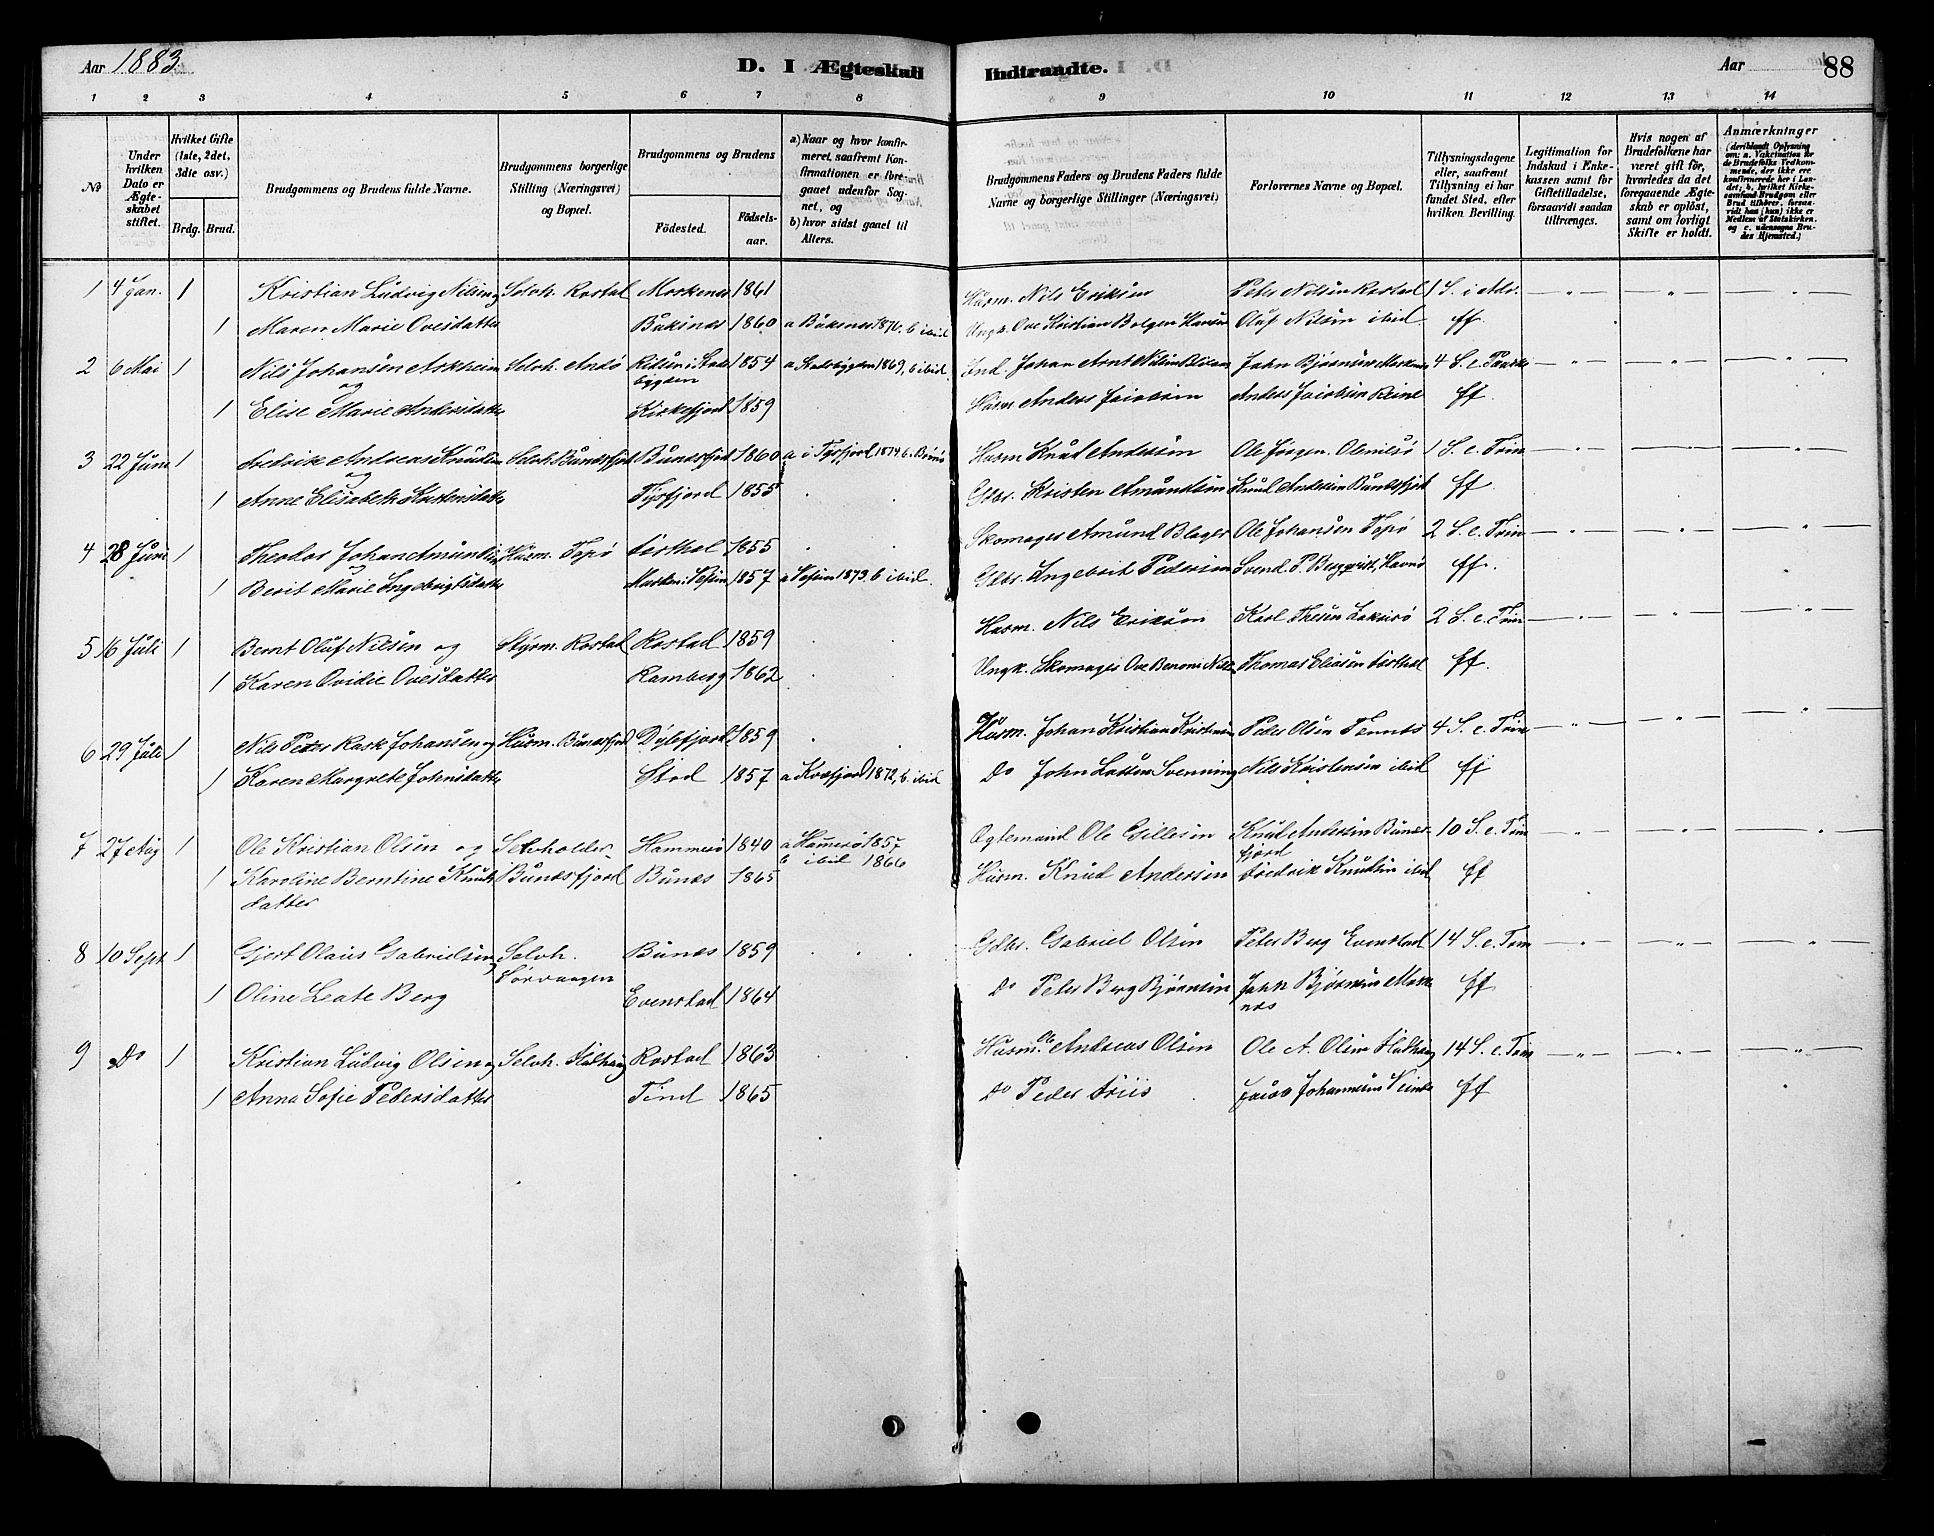 Aar 1883. D. I Ægteskab Indtraadte. Aar 88
1 2 3 4 5 6 7 8 9 10 11 12 13 14
No
Under hvilken Dato er Ægteskabet stiftet.
Hvilket Gifte (1ste, 2det, 3die osv.)
Brdg. Brud.
Brudgommens og Brudens fulde Navne.
Brudgommens borgerlige Stilling (Næringsvei) og Bopæl.
Brudgommens og Brudens
Födested. Födselsaar.
a) Naar og hvor konfirmeret, saafremt Konfirmationen er foregaaet udenfor Sognet, og
b) hvor sidst gaaet til Alters.
Brudgommens Faders og Brudens Faders fulde Navne og borgerlige Stillinger (Næringsvei)
Forlovernes Navne og Bopæl.
Tillysningsdagene eller, saafremt Tillysning ei har fundet Sted, efter hvilken Bevilling.
Legitimation for Indskud i Enkekassen samt for Giftetilladelse, forsaavidt saadan tiltrænges.
Hvis nogen af Brudefolkene har været gift för, hvorledes da det foregaaende Ægteskab er oplöst, samt om lovligt Skifte er holdt.
Anmærkninger (deriblandt Oplysning om: a. Vakcination for de Brudefolks Vedkommende, der ikke ere konfirmerede her i Landet; b. hvilket Kirkesamfund Brudgom eller Brud tilhörer, forsaavidt han (hun) ikke er Medlem af Statskirken, og c. udensogns Brudes Hjemsted.)
1 4 Jan. 1 Kristian Ludvig Nilsen og Selvh. Rostad Moskenes 1861 Husm. Nils Eriksen Peter Nilsen Rostad 1 S. i Adv.
1 Maren Marie Ovesdatter Buksnes 1860 a Buksnes 1876. b ibid Ungk. Ove Kristian Bolgen Hansen Oluf Nilsen ibid ff.
2 6 Mai 1 Nils Johansen Askheim Selvh. Andö 1854 a Stadsbygden 1869, b ibid. Ind. Johan Arnt Nilsen John Björnsen Moskenes 4 S. e. Paaske
og
1 Elise Marie Andersdatter Kirkefjord 1859 Husm Anders Jacobsen Anders Jacobsen Reine ff.
3 22 Juni 1 Fredrik Andreas Knudsen Selvh. Bunesfjord Bunesfjord 1860 a i Tysfjord 1874 b. Husm Knud Andersen Ole Jörgen 1 S. e. Trin
og
1 Anne Elisabeth Kristensdatter Tysfjord 1855 Gbr. Kristen Amundsen Knud Andersen Bunesfjord ff.
4 28 Juni 1 Theodor Johan Amundsen Husm. Tepö 1855 Skomager Amund Ole Johansen Tepö 2 S. e. Trin
og
1 Berit Marie Ingebrigtsdatter 1857 a 1873. b ibid. Gbr. Ingebrit Pedersen Svend P. Bergqvist, Havnö ff.
5 16 Juli 1 Bernt Oluf Nilsen og Styrm. Rostad Rostad 1859 Husm. Nils Eriksen Karl 2 S. e. Trin
1 Karen Ovidie Ovesdatter Ramberg 1862 Ungk. Skomager Ove Benoni Thomas Eliasen ff.
6 29 Juli 1 Nils Peter Rask Johansen og Husm. Bunesfjord Dybfjord 1859 Husm. Johan Kristian Kristensen Peder Olsen Tennes 4 S. e. Trin
1 Karen Margrete Johnsdatter Stod 1857 a 1872, b. ibid Do John Nils Kristensen ibid ff
7 27 Aug 1 Ole Kristian Olsen og Selvholder Hammerö 1840 a Hammerö 1857 Ole Gillesen Knud Andersen Bunesfjord 10 S. e. Trin
b ibid 1866
1 Karoline Berntine Knudsdatter Bunesfjord Bunes 1865 Husm. Knud Andersen Fredrik Knudsen ibid ff
8 10 Sept 1 Gjert Olaus Gabrielsen Selvh. Sörvaagen Bunes 1859 Gdbr. Gabriel Olsen Peter Berg Evenstad 14 S. e. Trin
1 Oline Leate Berg Evenstad 1864 Do Peter Berg Björnsen John Björnsen Moskenes ff
9 Do 1 Kristian Ludvig Olsen og Selvh. Rostad 1863 Husm. Ole Andreas Olsen Ole A. Olsen 14 S. e. Trin
1 Anna Sofie Pedersdatter Tind 1865 Do Peder Friis Jacob Johannesen ff